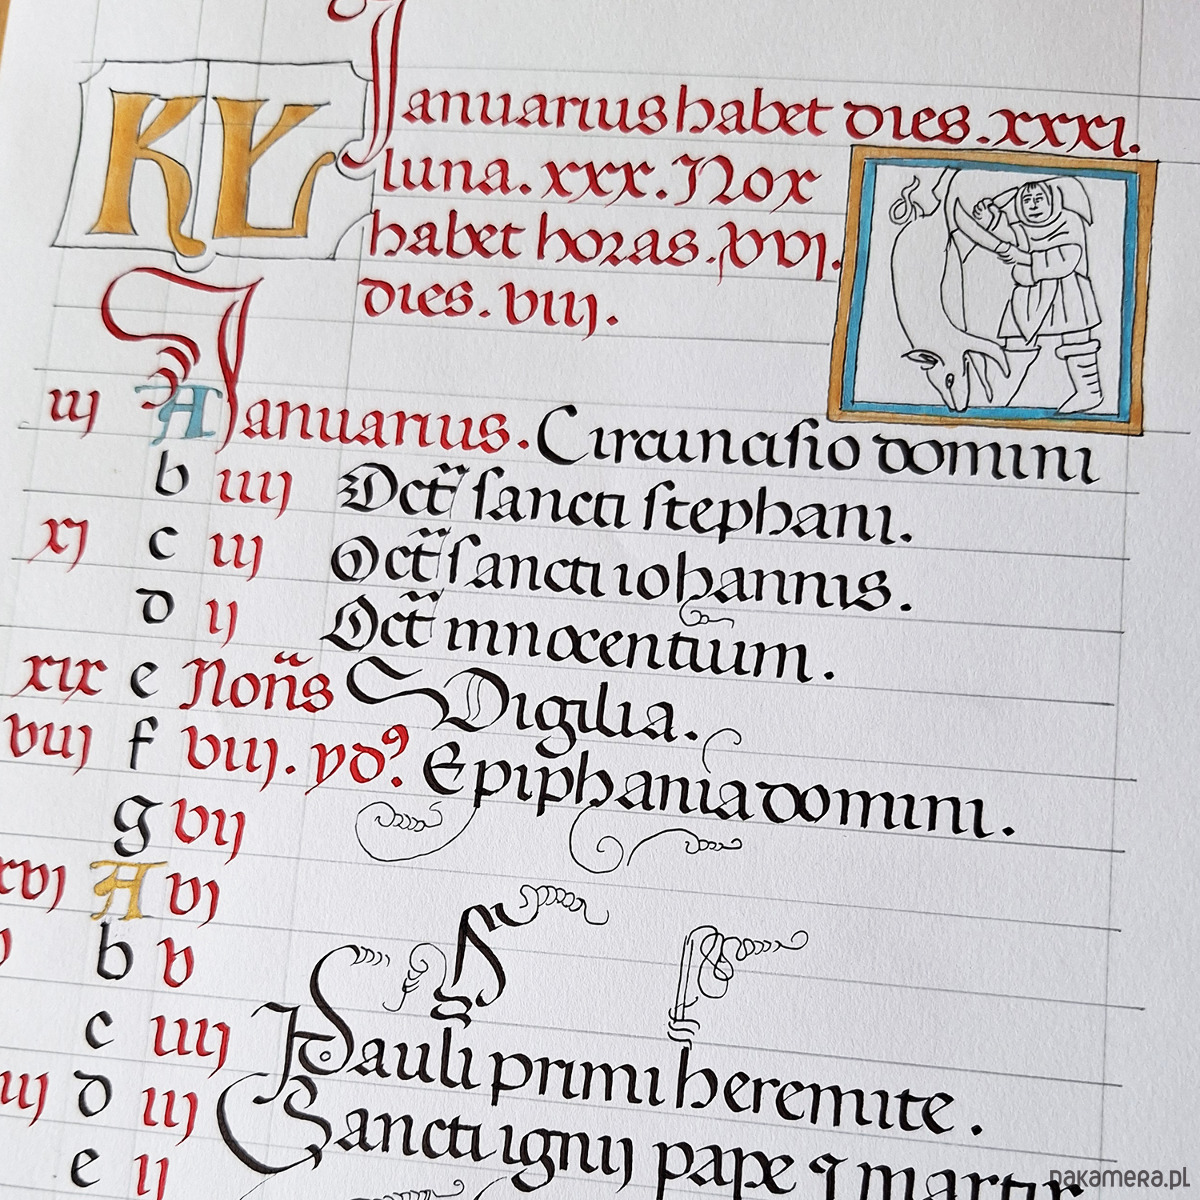 KL Januarius habet dies . xxxi .
luna . xxx . Nox
habet horas . xvj .
dies . viij .
iij A Januarius . Circuncisio domini
b iiij Oct̃ sancti stephani .
xj c iij Oct̃ sancti iohannis .
d ij Oct̃ innocentium .
xix e Non̄s Vigilia .
viij f viij . yd⁹ . Epiphania domini .
g vij
xvj A vj
v b v
c iiij
Pauli primi heremite .
iij d iij Sancti ignij pape ⁊ martiri
e ij
nakamera.pl